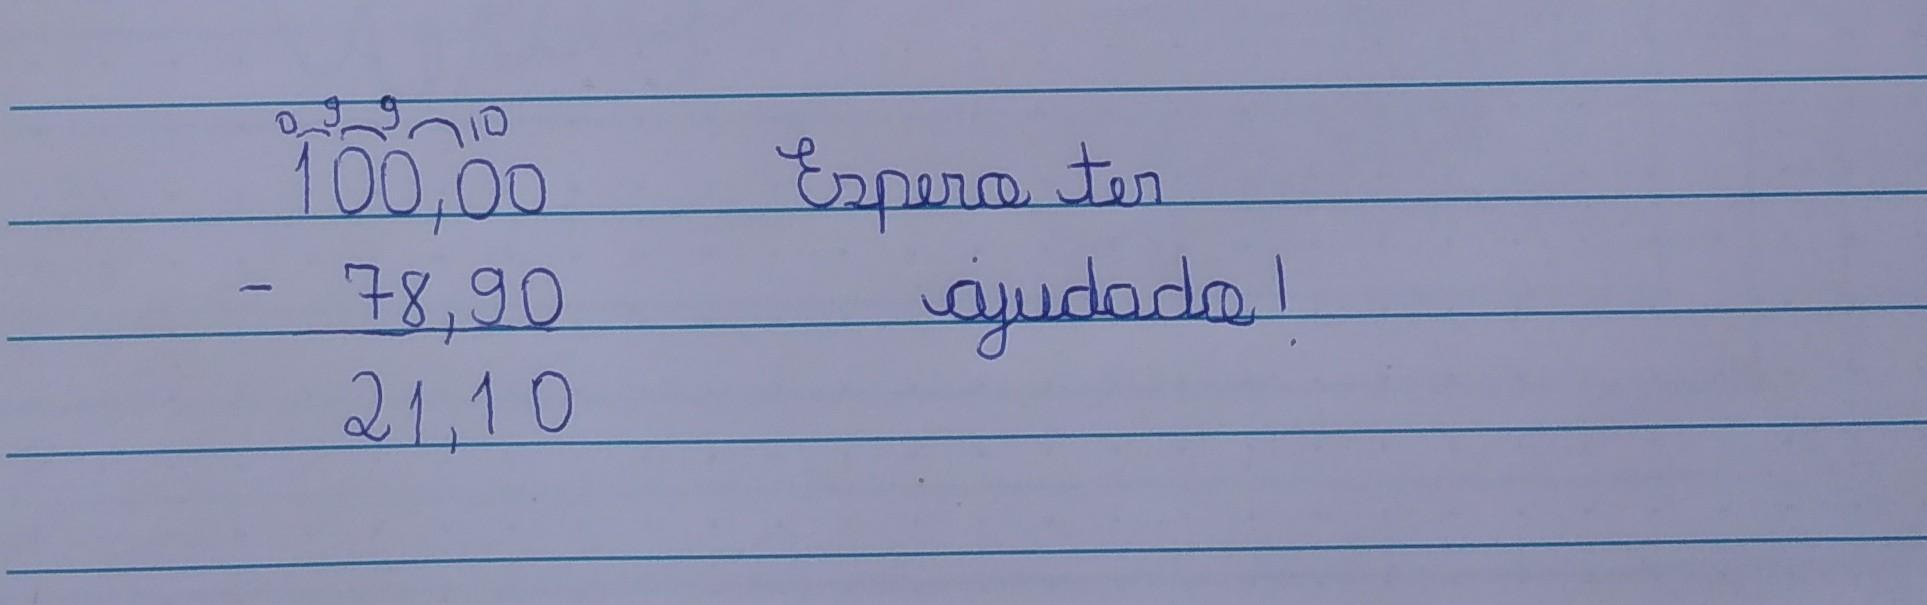 0 9 9 10
100,00 Espero ter
- 78,90 ajudado!
21,10